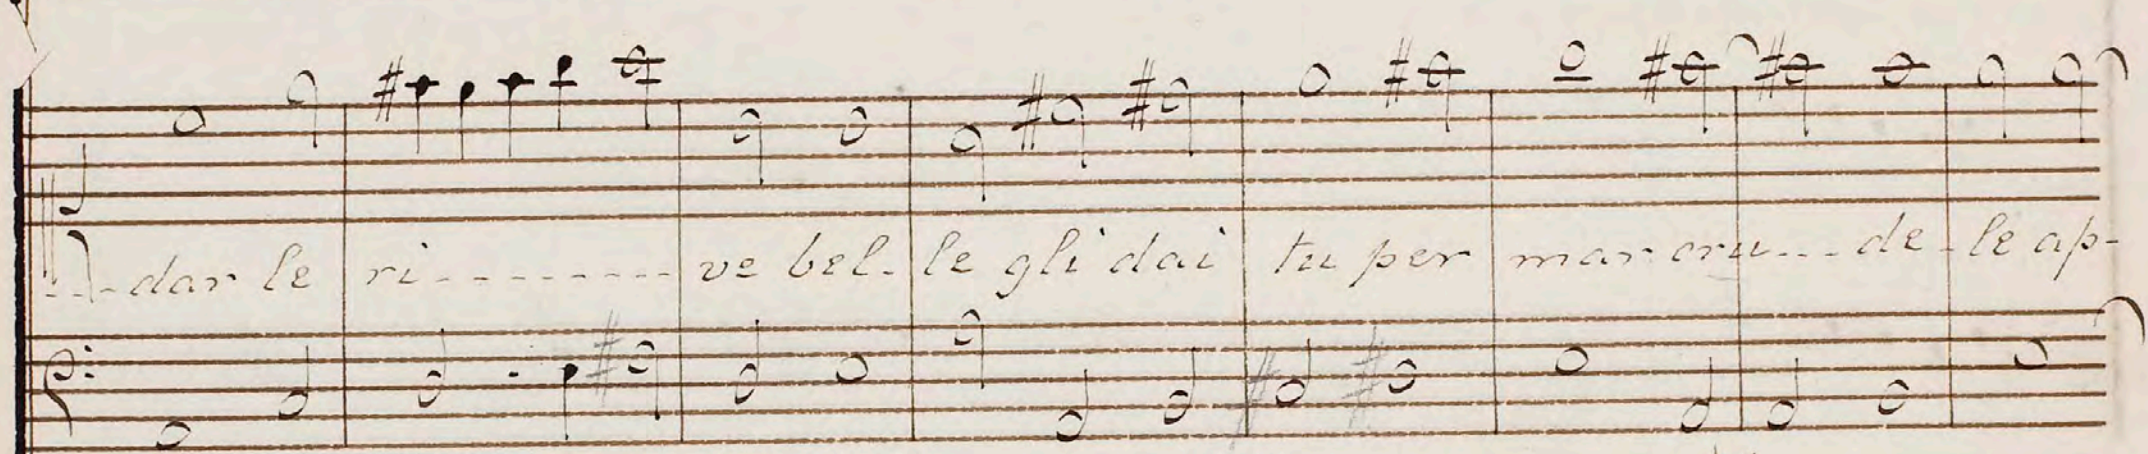 ...dar le ri--------- ve bel-le gli dai tu per mar cru...de-le ap-